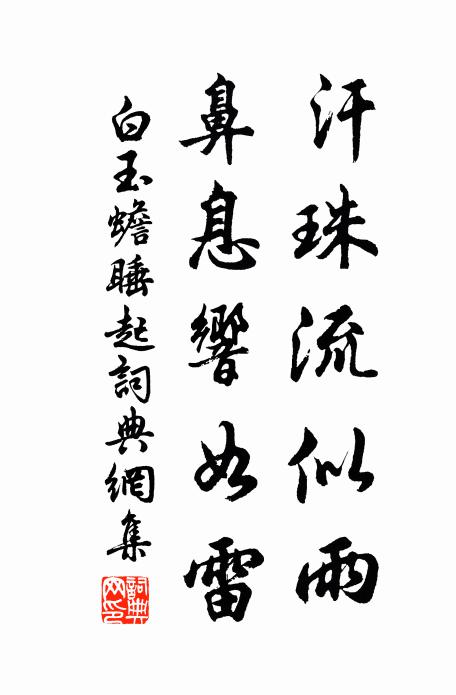 汗珠流似雨
鼻息響如雷
白玉蟾睡起詞典網集